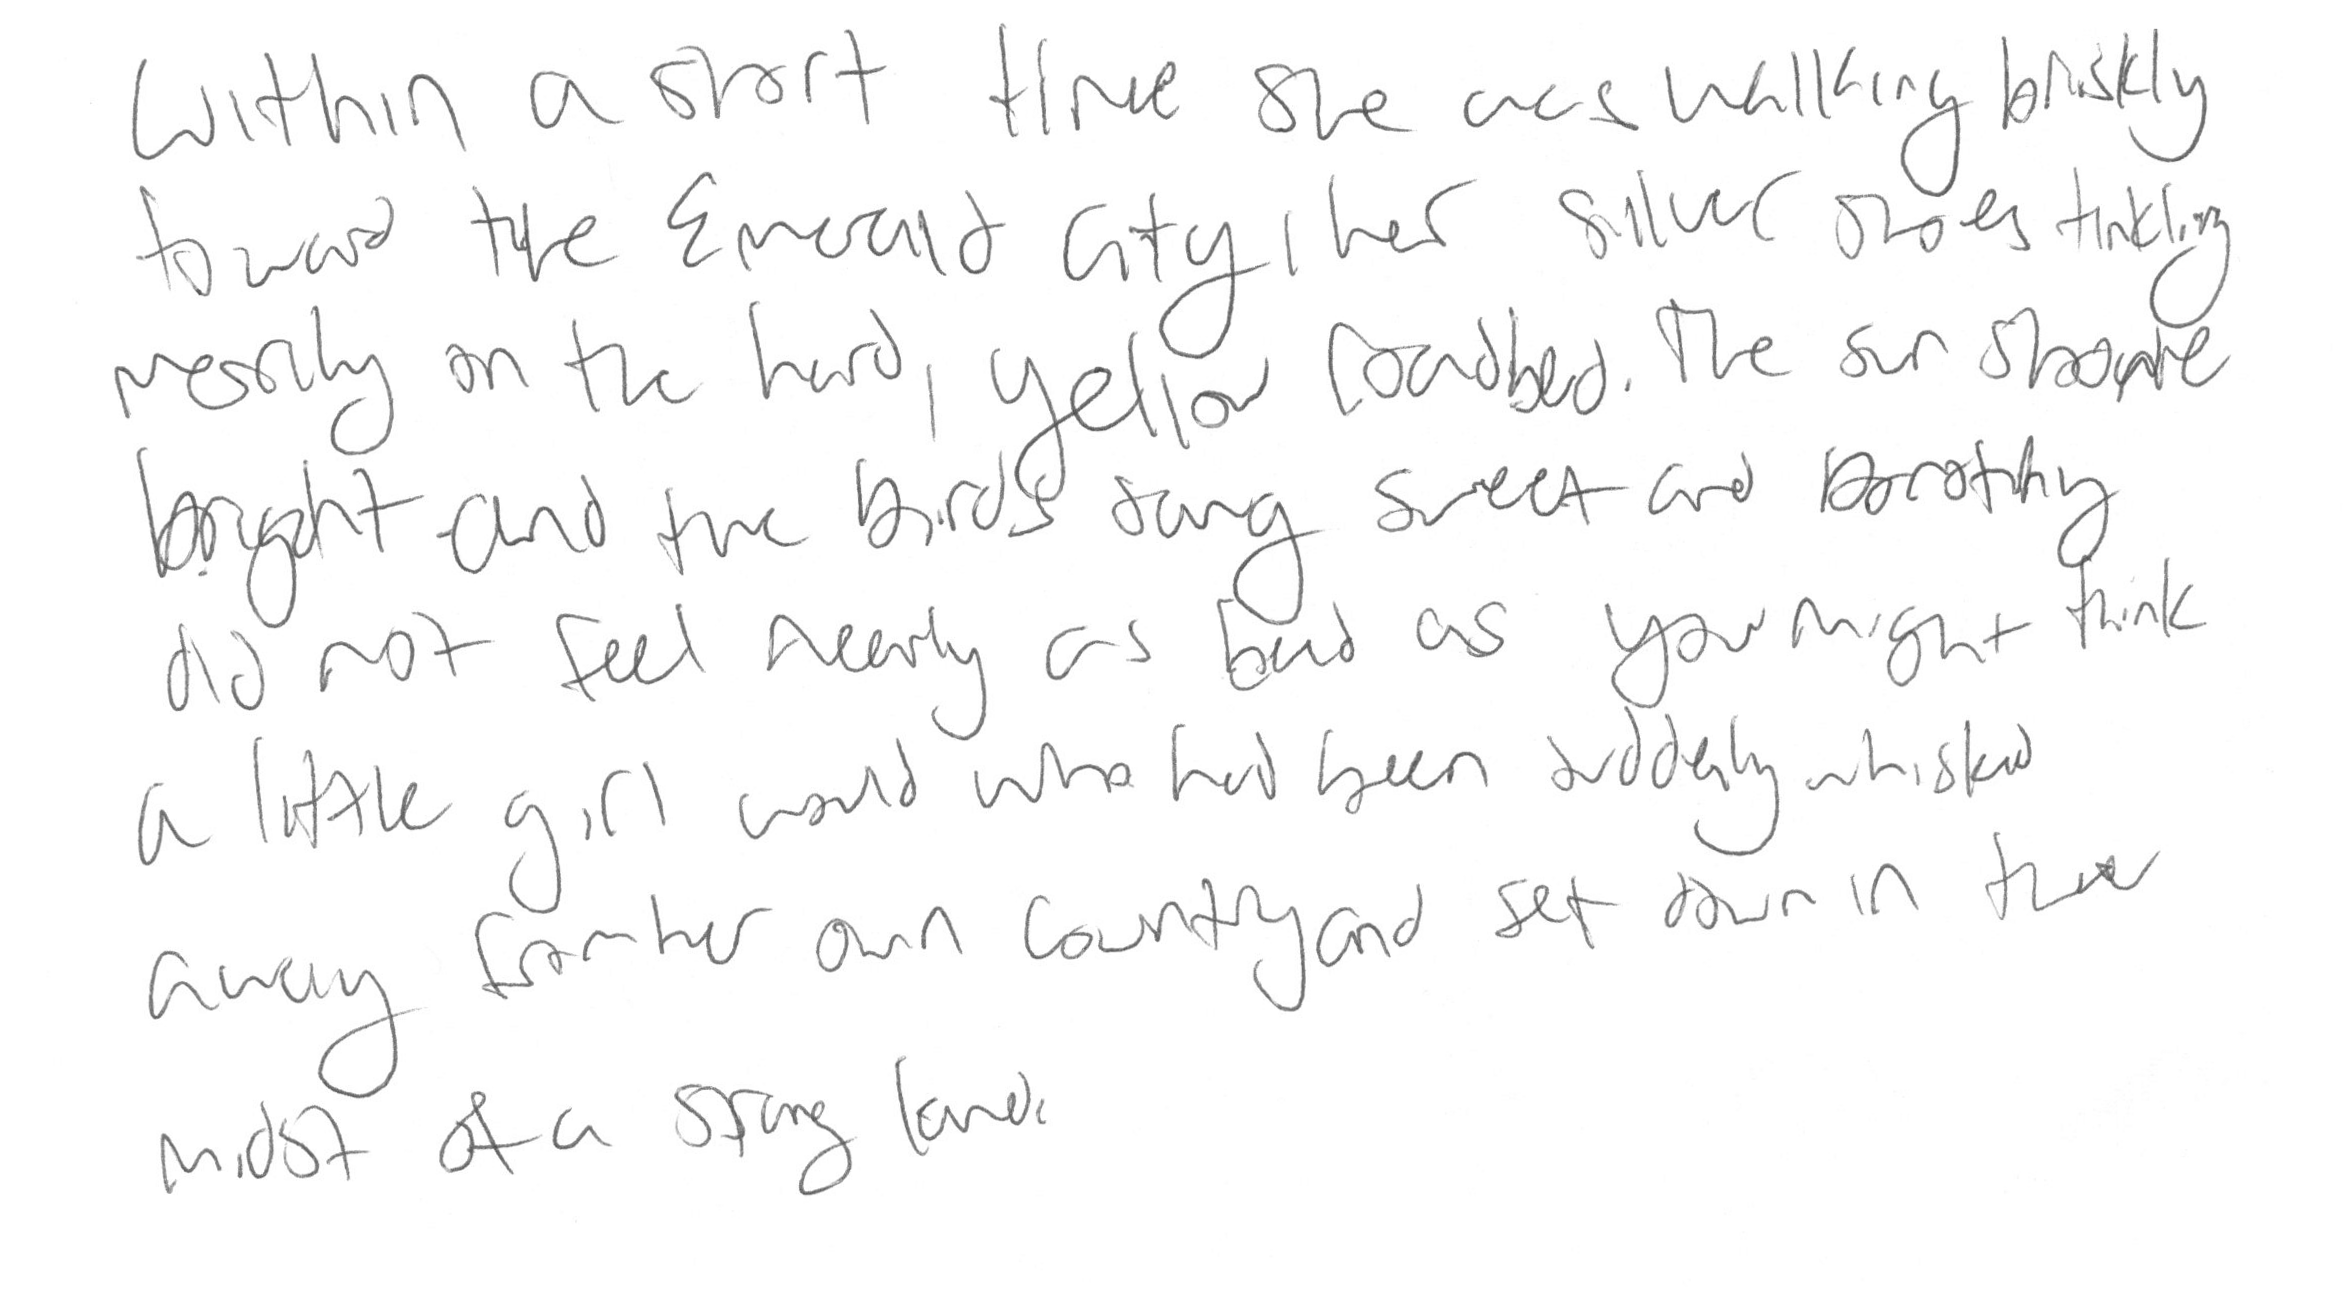 Within a short time she was walking briskly
toward the Emerald City, her silver shoes tinkling
merrily on the hard, yellow roadbed. The sun shone
bright and the birds sang sweet and Dorothy
did not feel nearly as bad as you might think
a little girl would who had been suddenly whisked
away from her own country and set down in the
midst of a strang land.